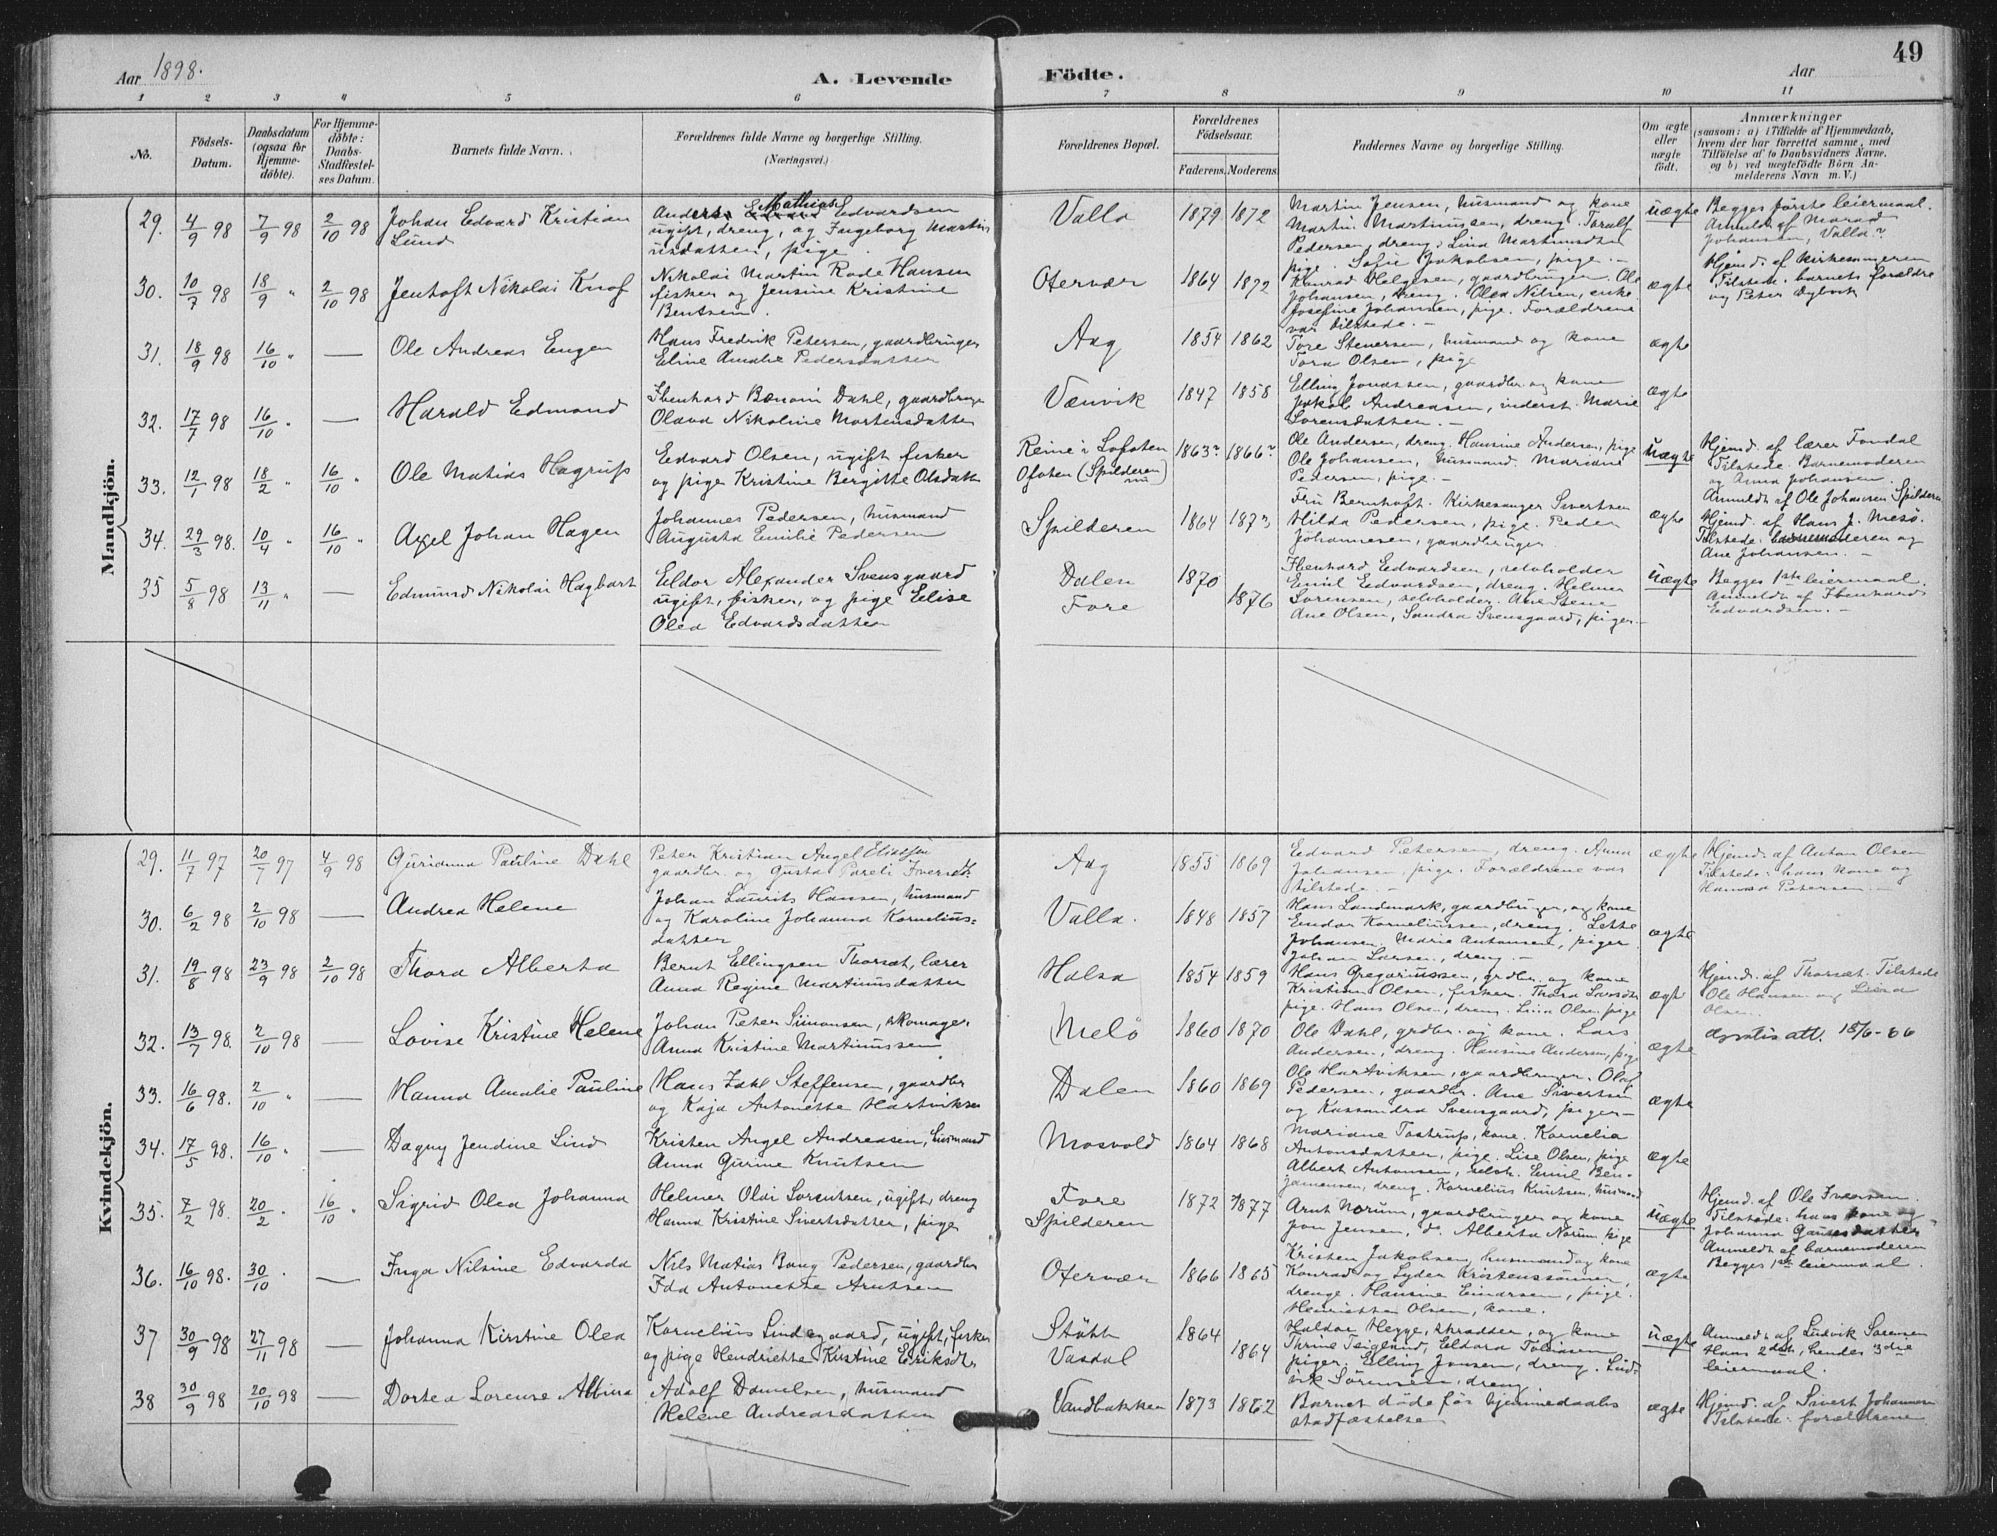 49
Aar 1898.
A. Levende
Födte.
Aar
1 2 3 4 5 6 7 8 9 10 11
No.
Födsels-
Datum.
Daabsdatum
(ogsaa for
Hjemme-
döbte).
For Hjemme-
döbte:
Daabs-
Stadfæstel-
ses Datum.
Barnets fulde Navn.
Forældrenes fulde Navne og borgerlige Stilling.
(Næringsvei.)
Forældrenes Bopæl.
Forældrenes
Födselsaar.
Faderens. Moderens.
Faddernes Navne og borgerlige Stilling.
Om ægte
eller
uægte
födt.
Anmærkninger
(saasom: a) i Tilfælde af Hjemmedaab,
hvem der har forrettet samme, med
Tilföielse af to Daabsvidners Navne,
og b) ved uægtefödte Börn An-
melderens Navn m. V.)
Mandkjön.
29. 4/9 98 7/9 98 2/10 98
Johan Edvard Kristian
Lund
Mathias
Anders Edvard Edvardsen
ugift, dreng, og Ingeborg Martin
usdatter, pige
Valla
1879 1872
Martin Jensen, husmand og kone
Martin Martinussen, dreng. Toralf
Pedersen, dreng. Lina Martinusdtr
pige. Sofie Jakobsen, pige. -
uægte
Begges förste leiermaal.
Anmeldt af
Johansen, Valla
30. 10/7 98 18/9 " 2/10 98
Jentoft Nikolai Knof
Nikolai Martin Rode Hansen
fisker og Jensine Kristine
Bentsen.
Otervær
1864 1872
Konrad Helgesen, gaardbruger. Ole
Johansen, dreng. Olea Nilsen, enke
Josefine Johansen, pige. Forældrene
var tilstede. -
ægte
Hjemd. af kirkesangeren
Tilstede: barnets forældre
og Peter Dybvik
31. 18/9 98 16/10 " —
Ole Andreas Engen
Hans Fredrik Petersen, gaardbruger
Eline Amalie Pedersdatter
Aag
1854 1862
Tore Stenersen, husmand og kone
Tora Olsen, pige
ægte
32. 17/7 98 16/10 " —
Harald Edmand
Ibenhard Benoni Dahl, gaardbruger
Olava Nikoline Mortensdatter
Vænvik
1847 1858
Elling Jonassen, gaardbr. og kone
Jakob Andreasen, inderst. Marie
Sorensdatter. -
ægte
33. 12/1 98 18/2 " 16/10 "
Ole Matias Hagrup
Edvard Olsen, ugift fisker
og pige Kristine Bergitte Olsdatter
Reine i Lofoten
Ofoten (Spilderen
nu)
1863 1866
Ole Andersen, dreng. Hansine Andersen, pige
Ole Johansen, husmand. Mariane
Pedersen, pige. -
uægte
Hjemd. af lærer Fondal
Tilstede: Barnemoderen
og Anna Johansen.
Anmeldt af Ole Johansen Spilderen
34. 29/3 98. 10/4 " 16/10 "
Axel Johan Hagen
Johannes Pedersen, husmand
Augusta Emilie Pedersen
Spilderen
1864 1873
Fru Bernhoft. Kirkesanger Sivertsen
Hilda Pedersen, pige. Peder
Johannesen, gaardbruger.
ægte
Hjemd. af Hans J. Mesö.
Tilstede: barnemoderen og
Ane Johansen. -
35 5/8 98 13/11 " —
Edmund Nikolai Hagbart
Eldor Alexander Svensgaard
ugift, fisker, og pige Elise
Olea Edvardsdatter
Dalen
Fore
1870
1876
Ibenhard Edvardsen, selveholder
Emil Edvardsen, dreng. Helmer
Sorensen, selvholder. Ane Stene
Ane Olsen, Sandra Svensgaard, piger. -
uægte
Begges 1ste leiermaal.
Anmeldt af Ibenhard
Edvardsen. -
Kvindekjön.
29. 11/7 97 20/7 97 4/9 98
Guridma Pauline Dahl
Peter Kristian Angel Eliassen
gaardbr. og Gusta Pareli Iversdtr
Aag
1855 1869
Edvard Petersen, dreng. Anna
Johansen, pige. Forældrene var
tilstede. -
ægte
Hjemd. af Anton Olsen
Tilstede: hans kone og
Petersen. -
30. 6/2 98 2/10 98 —
Andrea Helene
Johan Laurits Hansen, husmand
og Karoline Johanna Kornelius-
datter
Valla.
1848 1857
Hans Landmark, gaardbruger, og kone
Eindor Korneliussen, dreng. Lette
Johansen. Marie Antonsen, piger
Johan Larsen, dreng. -
ægte
31. 19/8 98 23/9 98 2/10 98
Thora Alberta
Bernt Ellingsen Thorsæt, lærer
Anna Regine Martinusdatter
Halsa
1854 1859
Hans Gregoriussen, grdbr. og kone
Kristian Olsen, fisker. Thora Larsdtr
pige. Hans Olsen, dreng. Lina Olsen, pige
ægte
Hjemd. af Thorsæt. Tilstede
Ole Hansen og Lisa
Olsen.
32. 13/7 98. 2/10 98 —
Lovise Kristine Helene
Johan Peter Simonsen, skomager
Anna Kristine Martinussen
Melö
1860 1870
Ole Dahl, grdbr. og kone. Lars
Andersen, dreng. Hansine Andersen, pige
ægte
gratis att. 15/6-66
33. 16/6 98. 2/10 " —
Hanna Amalie Pauline
Hans Zahl Steffensen, gaardbr
og Kaja Antonette Hartviksen
Dalen
1860 1869
Ole Hartviksen, gaardbruger. Olaf
Pedersen, gaardbr. Ane Sivertsen
og Kassandra Svensgaard, piger -
ægte
34. 17/5 98. 16/10 " —
Dagny Jendine Lind
Kristen Angel Andreasen, husmand
Anna Gurine Knutsen
Mosvold
1864 1868
Mariane Tostrup, kone. Kornelia
Antonsdatter, pige. Lise Olsen, pige
Albert Antonsen, selvh. Emil Ben-
jamensen, dreng. Kornelius Knutsen, husmand
ægte
35. 7/2 98. 20/2 " 16/10 "
Sigrid Olea Johanna
Helmer Olai Sorentsen, ugift, dreng
Hanna Kristine Sivertsdatter, pige
Fore
Spilderen
1872 1877
Arnt Norum, gaardbruger og kone
Jensen, d. Alberta Norum, pige
uægte
Hjemd. af Ole Iversen.
Tilstede: hans kone og
Johanna
Anmeldt af barnemoderen
Begges 1ste leiermaal.
36. 16/10 98. 30/10 . —
Inga Nilsine Edvarda
Nils Matias Bang Pedersen, gaardbr
Ida Antonette Arntsen
Otervær
1866 1865
Kristen Jakobsen, husmand og kone
Konrad og Lyder Kristenssönner,
drenge. Hansine Einarsen, pige.
Henriette Olsen, kone.
ægte
37 30/9 98 27/11 98 —
Johanna Kirstine Olea
Kornelius Lindegaard, ugift, fisker
og pige Hendriette Kristine Eriksdtr
Stött
Vasdal
1864
1864
Haldor Hegge, skradder, og kone
Thrine Teiglund, Eldora Tobiasen
piger. Elling Jensen, dreng. Lud-
vik Sörensen, dreng
uægte
Anmeldt af Ludvik Sorensen
Hans 2det, hendes 3die
leiermaal.
38 30/9 98 20/10 98 —
Dortea Lorense Albina
Adolf Danielsen, husmand
Helene Andreasdatter
Vandbakken
1873 1862
Barnet döde för hjemmedaabs
stadfæstelse
ægte
Hjemd. af Sivert Johannesen
Tilstede: forældrene